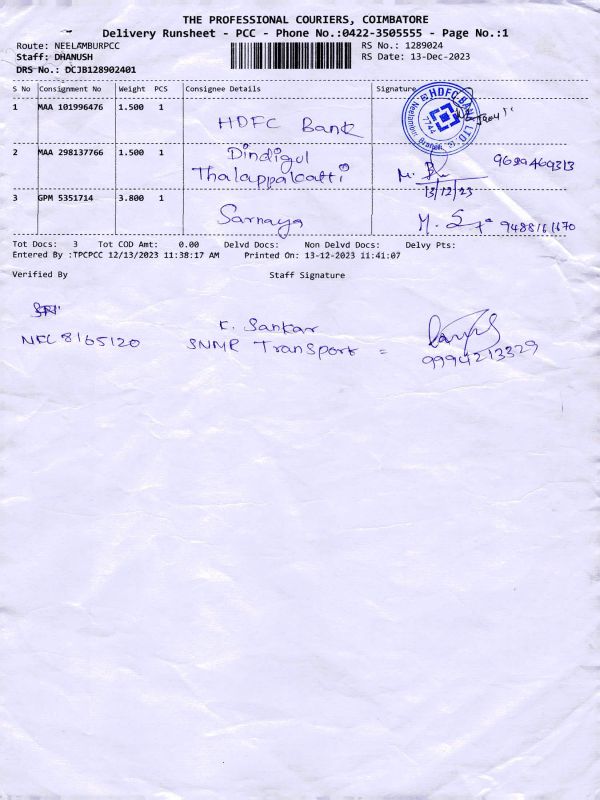 THE PROFESSIONAL COURIERS, COIMBATORE
Delivery Runsheet - PCC - Phone No.:0422-3505555 - Page No.:1
Route: NEELAMBURPCC RS No.: 1289024
Staff: DHANUSH RS Date: 13-Dec-2023
DRS No.: DCJB128902401
S No Consignment No Weight PCS Consignee Details Signature
1 MAA 101996476 1.500 1 HDFC Bank
HDFC BANK LTD. Neelambur Branch 7744
2 MAA 298137766 1.500 1 Dindigul
Thalappalcatti
13/12/23
3 GPM 5351714 3.800 1 Sarnaya 9488161670
Tot Docs: 3 Tot COD Amt: 0.00 Delvd Docs: Non Delvd Docs: Delvy Pts:
Entered By :TPCPCC 12/13/2023 11:38:17 AM Printed On: 13-12-2023 11:41:07
Verified By Staff Signature
K. Sankar
NFC 8165120 SNMR Transport = 9994213329